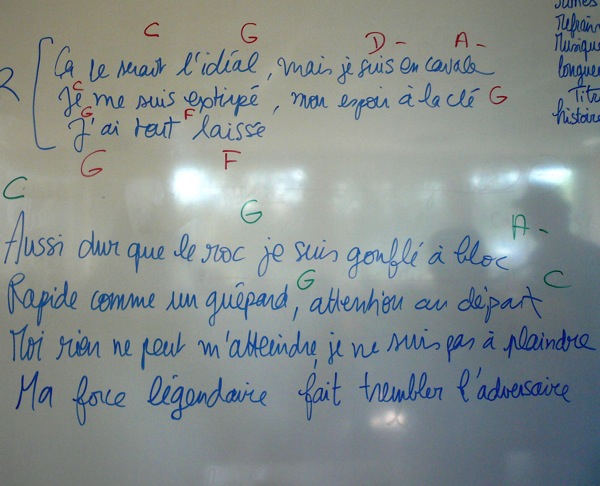 C G D- A-
R
Ça le serait l'idéal, mais je suis en cavale
C
Je me suis extirpé, mon espoir à la clé G
G F
J'ai tout laissé
G F
C G A-
Aussi dur que le roc je suis gonflé à bloc
G C
Rapide comme un guépard, attention au départ
Moi rien ne peut m'atteindre, je ne suis pas à plaindre
Ma force légendaire fait trembler l'adversaire
refrain
Musique
longueu
Titr
histoire